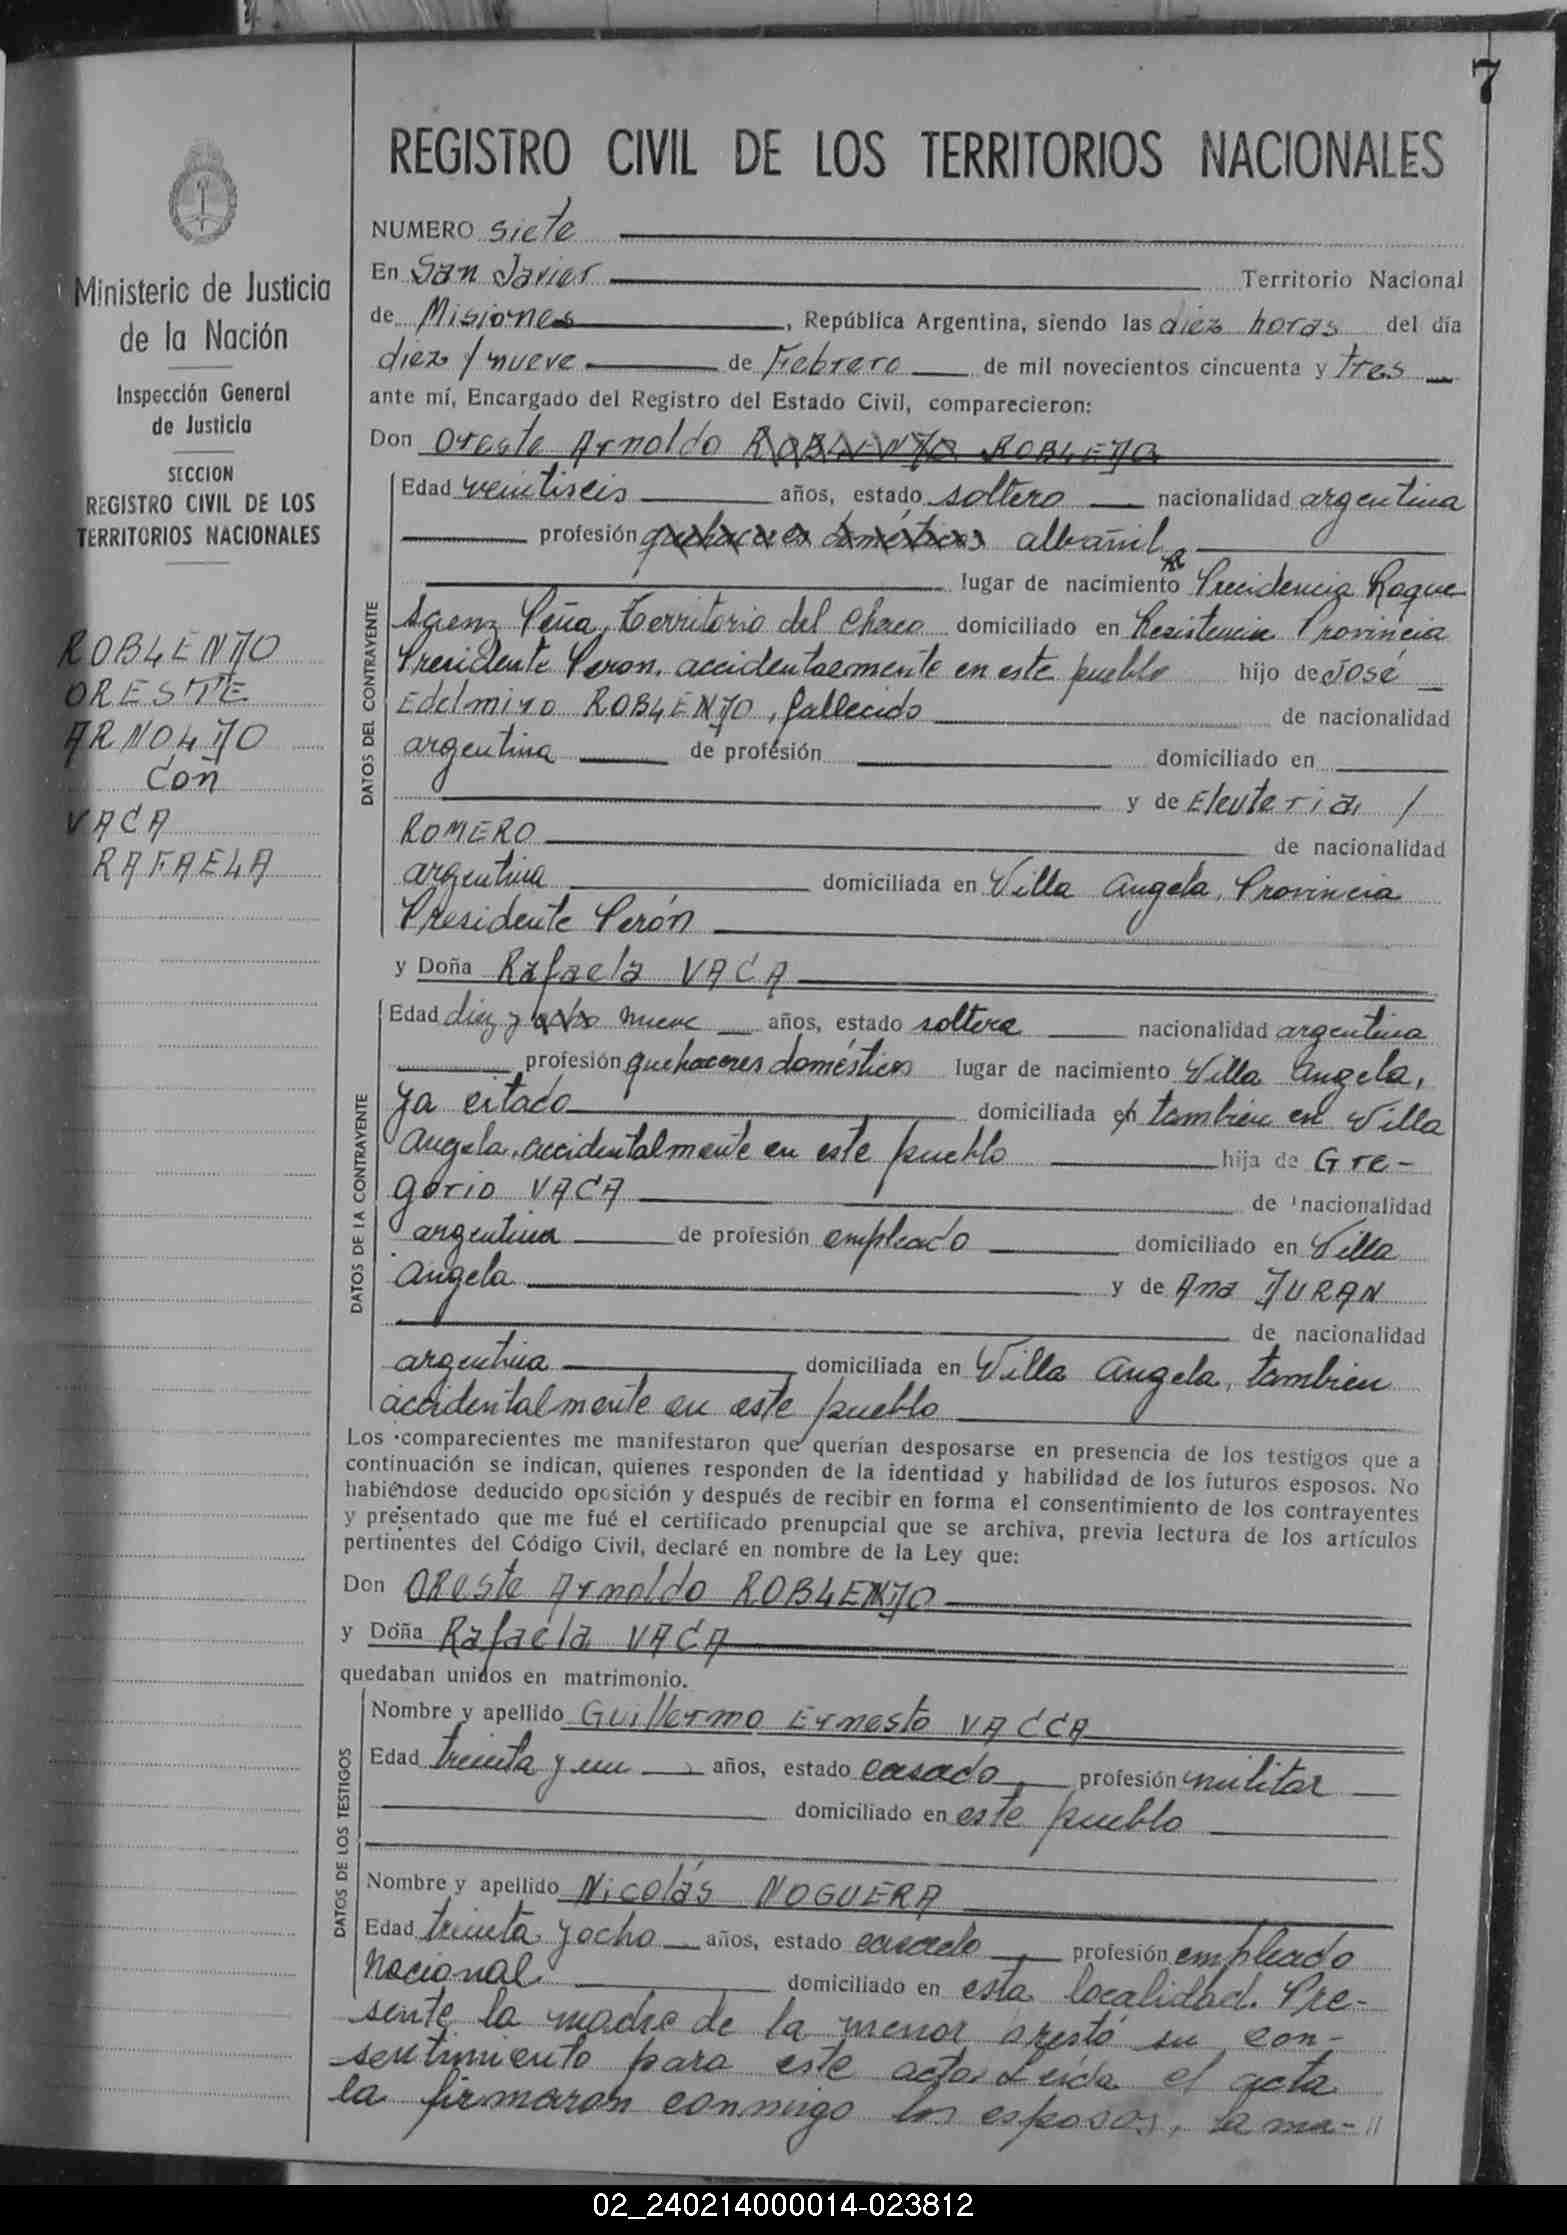 7
REGISTRO CIVIL DE LOS TERRITORIOS NACIONALES
Ministerio de Justicia
de la Nación
Inspección General
de Justicia
SECCION
REGISTRO CIVIL DE LOS
TERRITORIOS NACIONALES
ROBLENDO
ORESTE
ARNOLDO
con
VACA
RAFAELA
NUMERO siete
En San Javier Territorio Nacional
de Misiones, República Argentina, siendo las diez horas del día
diez y nueve de Febrero de mil novecientos cincuenta y tres
ante mí, Encargado del Registro del Estado Civil, comparecieron:
Don Oreste Arnoldo ROBLENDO ROBLEDO
DATOS DEL CONTRAYENTE
Edad veintiseis años, estado soltero nacionalidad argentina
profesión quehaceres domésticos albañil
lugar de nacimiento Presidencia Roque
Saenz Peña, Territorio del Chaco domiciliado en Resistencia Provincia
Presidente Peron, accidentalmente en este pueblo hijo de José
Edelmiro ROBLENDO, fallecido de nacionalidad
argentina de profesión domiciliado en
y de Eleuteria
ROMERO de nacionalidad
argentina domiciliada en Villa Angela, Provincia
Presidente Perón
y Doña Rafaela VACA
DATOS DE LA CONTRAYENTE
Edad diez y ocho nueve años, estado soltera nacionalidad argentina
profesión quehaceres domésticos lugar de nacimiento Villa Angela,
ya citado domiciliada en tambien en Villa
Angela, accidentalmente en este pueblo hija de Gre-
gorio VACA de nacionalidad
argentina de profesión empleado domiciliado en Villa
Angela y de Ana DURAN
de nacionalidad
argentina domiciliada en Villa Angela, tambien
accidentalmente en este pueblo
Los comparecientes me manifestaron que querían desposarse en presencia de los testigos que a
continuación se indican, quienes responden de la identidad y habilidad de los futuros esposos. No
habiéndose deducido oposición y después de recibir en forma el consentimiento de los contrayentes
y presentado que me fué el certificado prenupcial que se archiva, previa lectura de los artículos
pertinentes del Código Civil, declaré en nombre de la Ley que:
Don Oreste Arnoldo ROBLENDO
y Doña Rafaela VACA
quedaban unidos en matrimonio.
DATOS DE LOS TESTIGOS
Nombre y apellido Guillermo Ernesto VACCA
Edad treinta y un años, estado casado, profesión militar
domiciliado en este pueblo
Nombre y apellido Nicolás NOGUERA
Edad treinta y ocho años, estado casado, profesión empleado
Nacional domiciliado en esta localidad. Pre-
sente la madre de la menor prestó su con-
sentimiento para este acto. Leída el acta
la firmaron conmigo los esposos, la ma-//
02_240214000014-023812